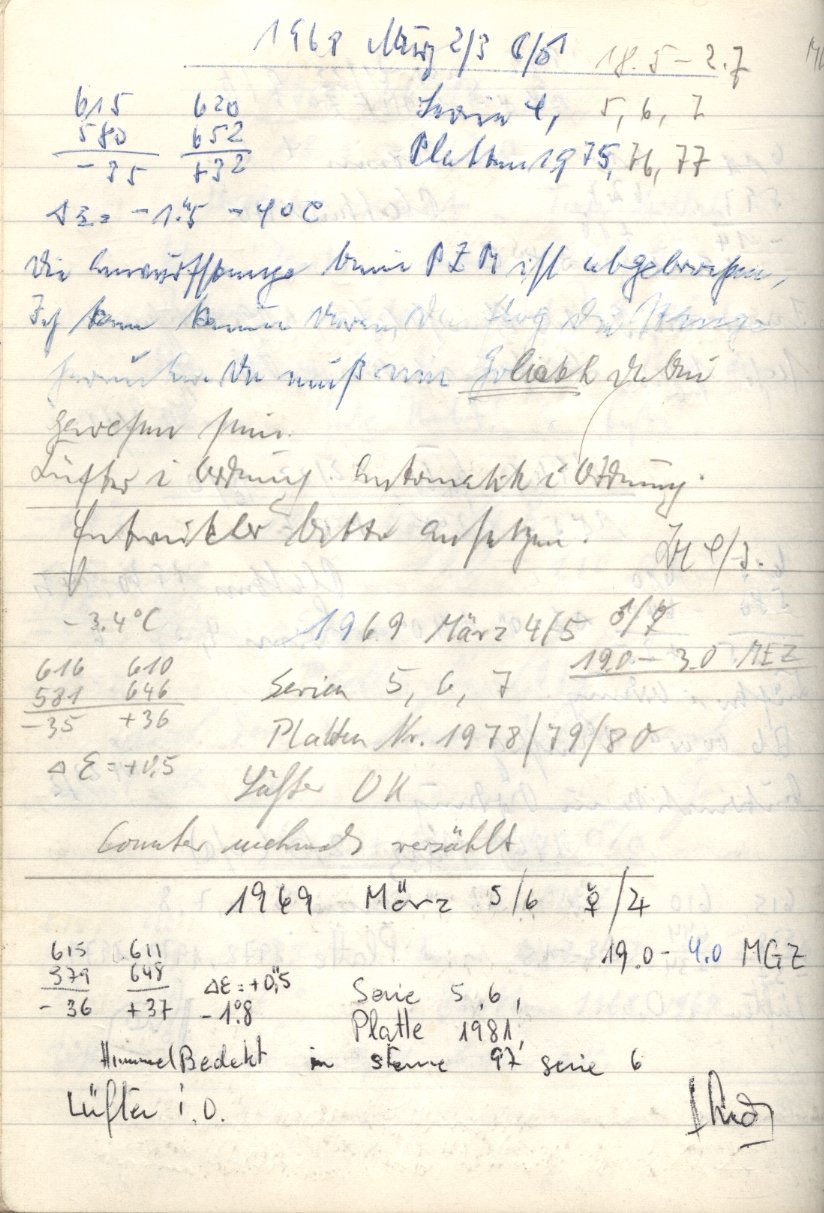 1969 März 2/3 18.5 – 2.7
615 620 Serien 4, 5, 6, 7
580 652 Platten 1975, 76, 77
-35 +32
Δε = -1."5 -4°C
Die beim PZM ist abgebrochen,
Ich kann keinen
Da muß ein Goliath dabei
gewesen sein.
Lüfter i Ordnung. Automatik i Ordnung.
Entwickler bitte ansetzen.
-3.4°C 1969 März 4/5 ♂/☿
19.0 – 3.0 MEZ
616 610 Serien 5, 6, 7
581 646
-35 +36 Platten Nr. 1978/79/80
Δε = +0,"5 Lüfter OK
Counter mehrmals verzählt
1969 März 5/6 ☿/♃
19.0 - 4.0 MGZ
615 611
579 648 Δε = +0,"5 Serie 5, 6,
-36 +37 -1°8 Platte 1981,
Himmel Bedekt in sterne 97 serie 6
Lüfter i.O.